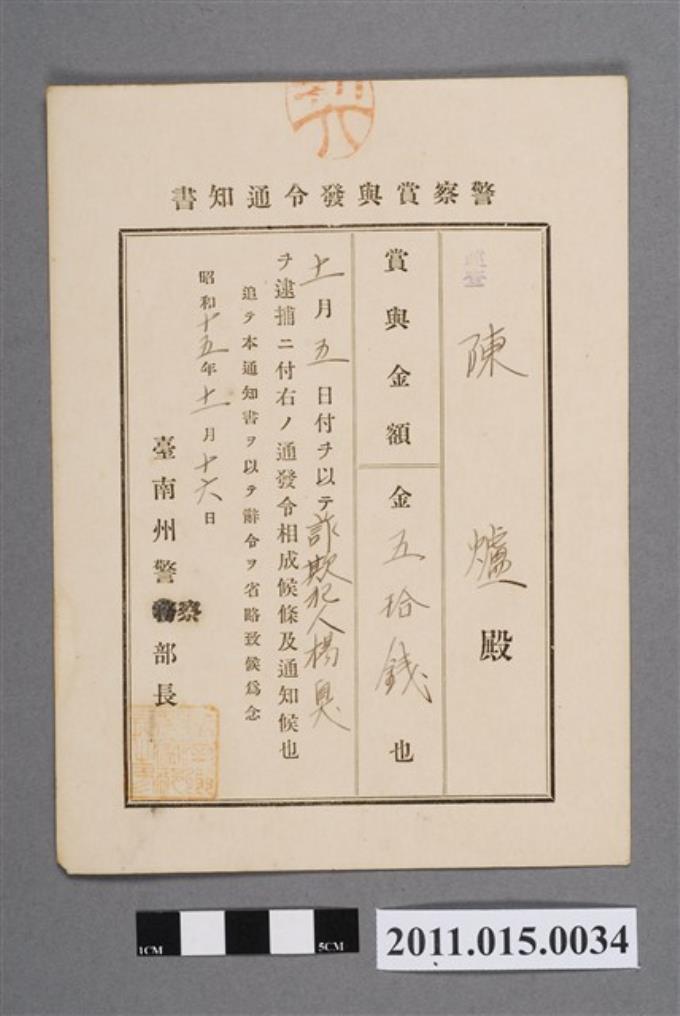 警察賞與發令通知書
陳爐殿
賞與金額
金五拾錢也
十一月五日付ヲ以テ詐欺犯人楊臭
ヲ逮捕ニ付右ノ通發令相成候條及通知候也
追テ本通知書ヲ以テ辭令ヲ省略致候爲念
昭和十五年十一月十六日
臺南州警察部長
1CM
5CM
2011.015.0034